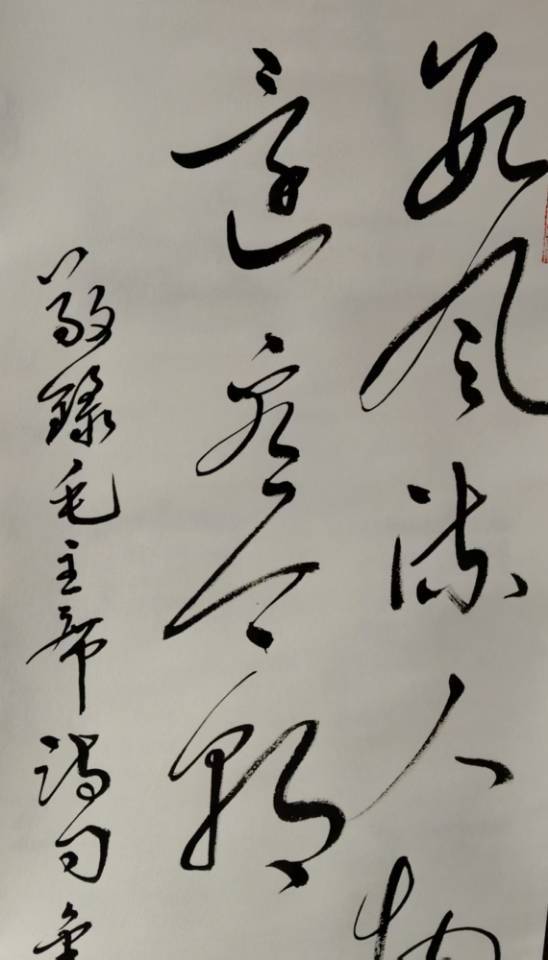 数风流人物
还看今朝
敬录毛主席词句